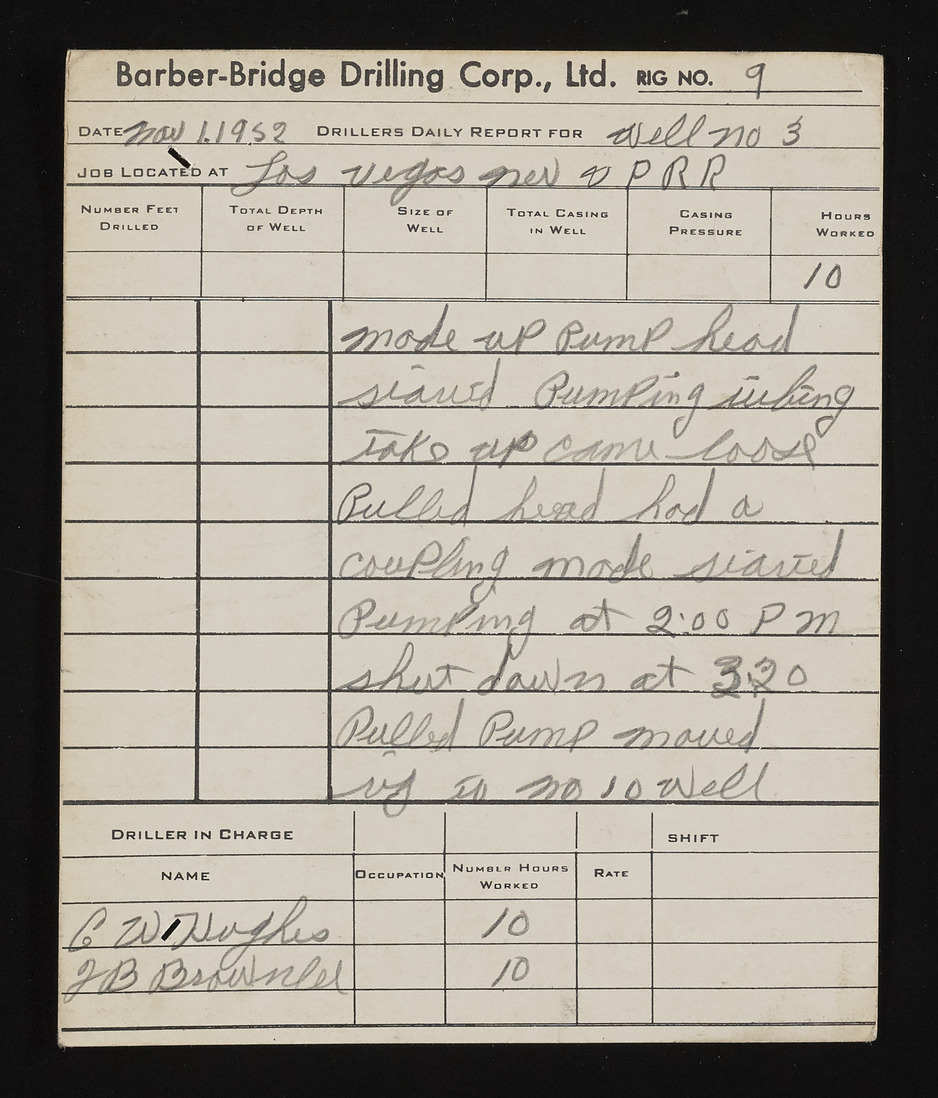 Barber-Bridge Drilling Corp., Ltd. RIG NO. 9
DATE Nov 1.1952 DRILLERS DAILY REPORT FOR Well no 3
JOB LOCATED AT Los vegas nev U P R R
NUMBER FEET DRILLED TOTAL DEPTH OF WELL SIZE OF WELL TOTAL CASING IN WELL CASING PRESSURE HOURS WORKED
10
made up Pump head
started Pumping tubing
take up came loose
Pulled head had a
coupling made started
Pumping at 2:00 P m
shut down at 3:20
Pulled Pump moved
rig to no 10 well
DRILLER IN CHARGE SHIFT
NAME OCCUPATION NUMBER HOURS WORKED RATE
C W Hughes 10
J B Brownlee 10